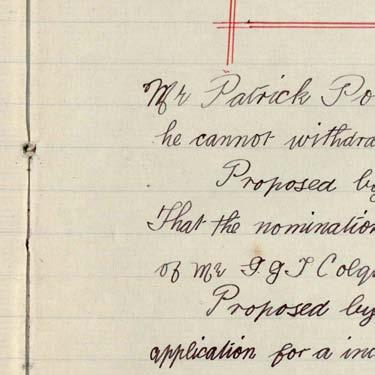 Mr Patrick Po
he cannot withdra
Proposed by
That the nomination
of Mr G. G. T Colq
Proposed by
application for a inc